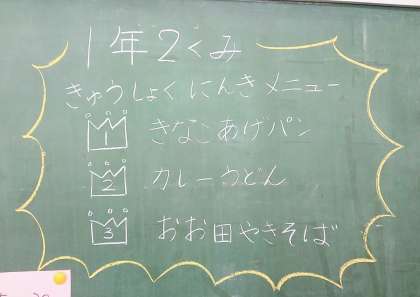 1年2くみ
きゅうしょくにんきメニュー
1 きなこあげパン
2 カレーうどん
3 おお田やきそば